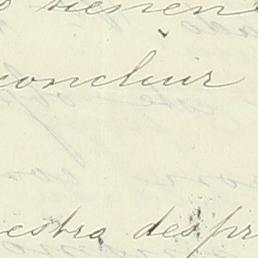 vienen
concluir
estra despr